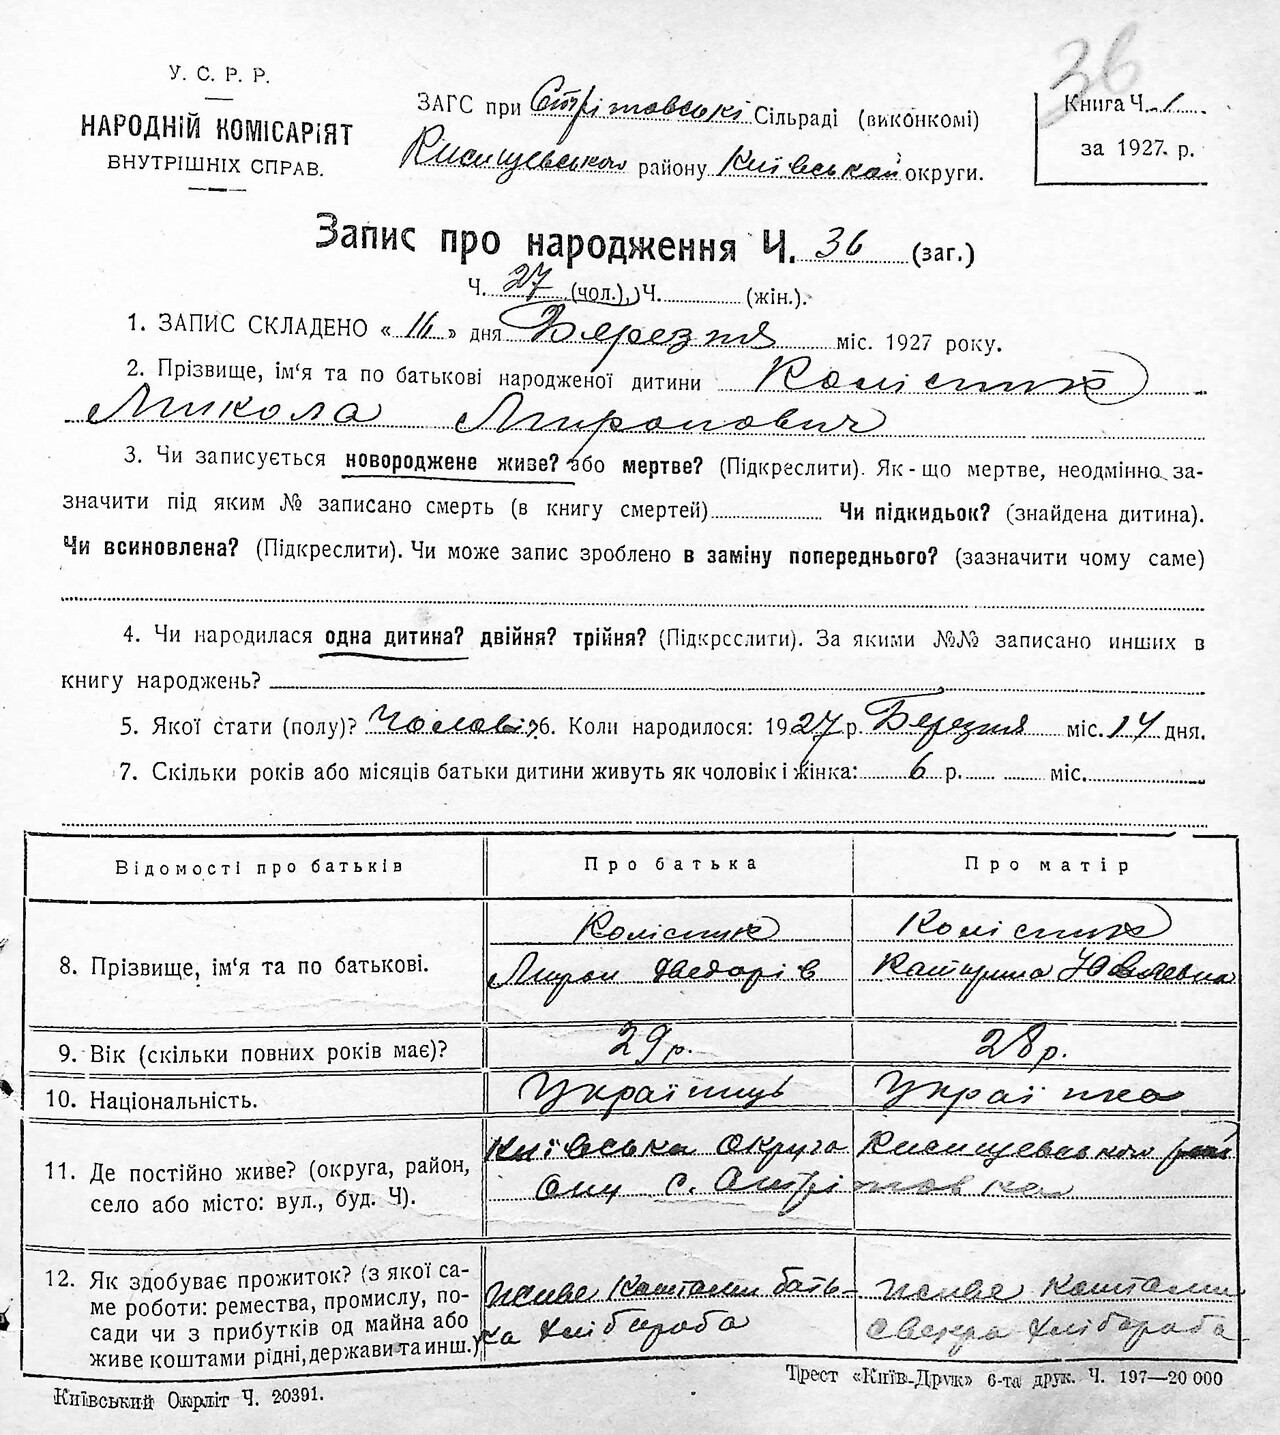 36
У. С. Р. Р.
НАРОДНІЙ КОМІСАРІЯТ
ВНУТРІШНІХ СПРАВ.
ЗАГС при Стрітовські Сільраді (виконкомі)
району Київськой округи.
Книга Ч. 1
за 1927 р.
Запис про народження Ч. 36 (заг.)
Ч. 27 (чол.), Ч. (жін.).
1. ЗАПИС СКЛАДЕНО « 16 » дня Березня міс. 1927 року.
2. Прізвище, ім‘я та по батькові народженої дитини Колісник
Микола Миронович
3. Чи записується новороджене живе? або мертве? (Підкреслити). Як-що мертве, неодмінно за-
значити під яким № записано смерть (в книгу смертей) Чи підкидьок? (знайдена дитина).
Чи всиновлена? (Підкреслити). Чи може запис зроблено в заміну попереднього? (зазначити чому саме)
4. Чи народилася одна дитина? двійня? трійня? (Підкрсслити). За якими №№ записано инших в
книгу народжень?
5. Якої стати (полу)? Чолові 6. Коли народилося: 1927 р. Березня міс. 14 дня.
7. Скільки років або місяців батьки дитини живуть як чоловік і жінка: 6 р. міс.
Відомості про батьків Про батька Про матір
8. Прізвище, ім‘я та по батькові. Колісник Колісник
Мирон Федорів Катерина
9. Вік (скільки повних років має)? 29 р. 28 р.
10. Національність. Українць Українка
11. Де постійно живе? (округа, район, Київська округа
село або місто: вул., буд. Ч). с. Стрітовка
12. Як здобуває прожиток? (з якої са-
ме роботи: ремества, промислу, по- живе коштами бать- живе коштами
сади чи з прибутків од майна або ка хлібороба свекра хлібороба
живе коштами рідні, держави та инш.)
Київський Окрліт Ч. 20391.
Трест «Київ-Друк» 6-та друк. Ч. 197—20 000